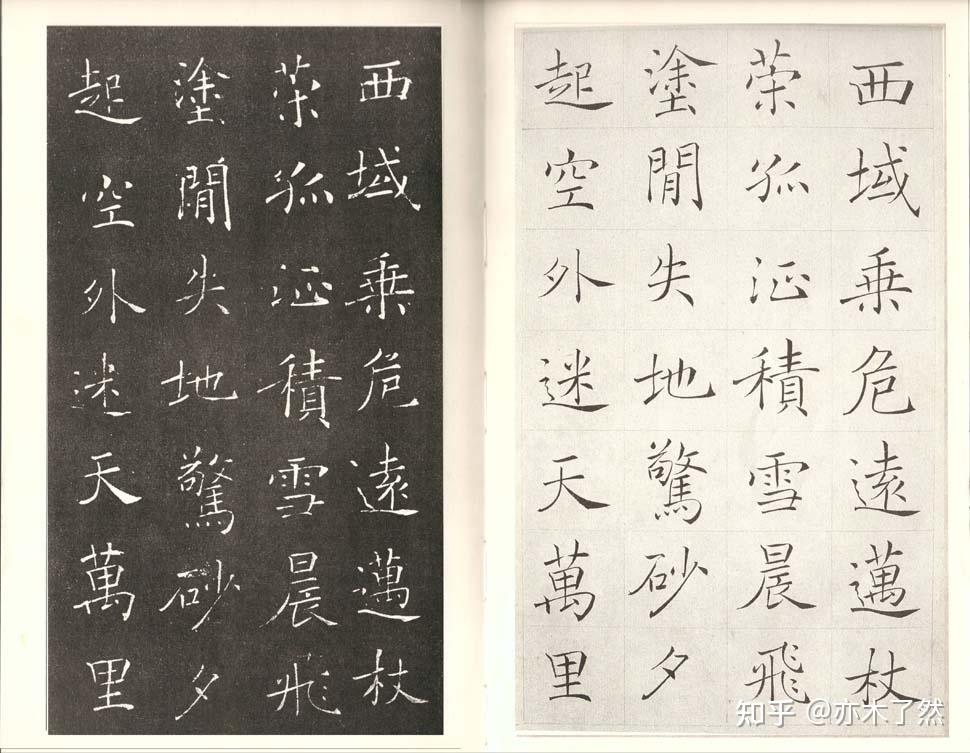 西域乘危遠邁杖
茦孤征積雪晨飛
塗閒失地驚砂夕
起空外迷天萬里
西域乘危遠邁杖
茦孤征積雪晨飛
塗閒失地驚砂夕
起空外迷天萬里
知乎 @亦木了然